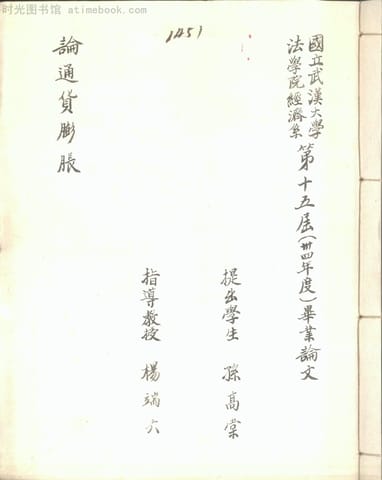 时光图书馆 atimebook.com
1451
國立武漢大學
法學院經濟系
第十五屆(卅四年度)畢業論文
提出學生 孫高棠
指導教授 楊端六
論通貨膨脹